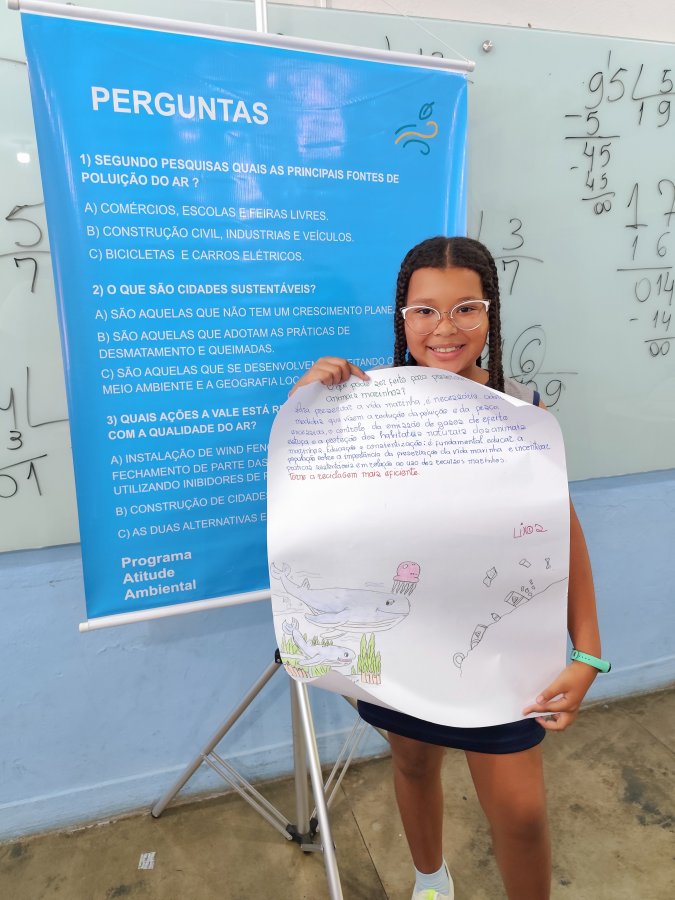 PERGUNTAS
1) SEGUNDO PESQUISAS QUAIS AS PRINCIPAIS FONTES DE
POLUIÇÃO DO AR ?
A) COMÉRCIOS, ESCOLAS E FEIRAS LIVRES.
B) CONSTRUÇÃO CIVIL, INDUSTRIAS E VEÍCULOS.
C) BICICLETAS E CARROS ELÉTRICOS.
2) O QUE SÃO CIDADES SUSTENTÁVEIS?
A) SÃO AQUELAS QUE NÃO TEM UM CRESCIMENTO
B) SÃO AQUELAS QUE ADOTAM AS PRÁTICAS DE
DESMATAMENTO E QUEIMADAS.
C) SÃO AQUELAS QUE SE DESENVOLVEM O
MEIO AMBIENTE E A GEOGRAFIA
3) QUAIS AÇÕES A VALE ESTÁ
COM A QUALIDADE DO AR?
A) INSTALAÇÃO DE WIND
FECHAMENTO DE PARTE DAS
UTILIZANDO INIBIDORES DE
B) CONSTRUÇÃO DE
C) AS DUAS ALTERNATIVAS
Programa
Atitude
Ambiental
O que pode ser feito para
animais marinhos?
Para preservar a vida marinha, é necessário
medidas que visem a redução da poluição e da pesca
o controle da emissão de gases de efeito
estufa e a proteção dos habitats naturais dos animais
marinhos. Educação e conscientização: é fundamental educar a
população sobre a importância da preservação da vida marinha e incentivar
práticas sustentáveis em relação ao uso dos recursos marinhos.
Torne a reciclagem mais eficiente.
Lixos
95 5
- 5 19
45
- 45
00
17
16
014
- 14
00
3
7
5
7
4
3
01